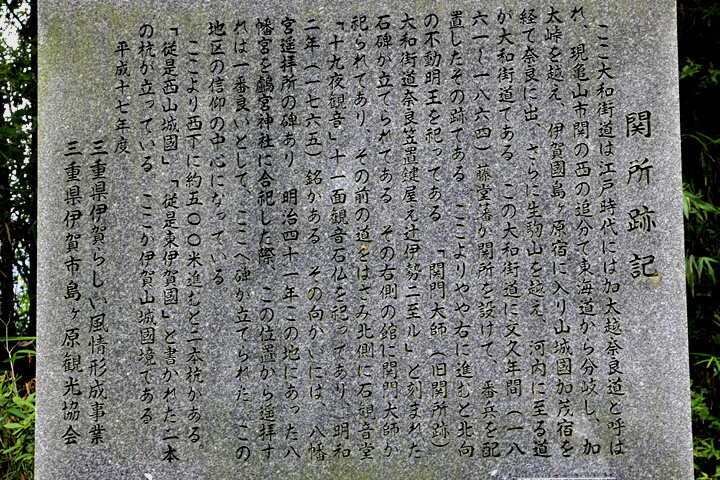 関所跡記
ここ大和街道は江戸時代には加太越奈良道と呼ば
れ、現亀山市関の西の追分で東海道から分岐し、加
太峠を越え、伊賀國島ヶ原宿に入り山城國加茂宿を
経て奈良に出、さらに生駒山を越え、河内に至る道
が大和街道である。この大和街道に文久年間（一八
六一〜一八六四）藤堂藩が関所を設けて、番兵を配
置したその跡である。ここよりやや右に進むと北向
の不動明王を祀ってある。「関門大師（旧関所跡）
大和街道奈良笠置鍵屋え辻伊勢ニ至ル」と刻まれた
石碑が立てられてある。その右側の館に関門大師が
祀られてあり、その前の道をはさみ北側に石観音堂
「十九夜観音」十一面観音石仏を祀ってあり、明和
二年（一七六五）銘がある。その向かいには、八幡
宮遥拝所の碑あり、明治四十一年この地にあった八
幡宮を鵜宮神社に合祀した際、この位置から遥拝す
れば一番良いとして、ここへ碑が立てられた。この
地区の信仰の中心になっている。
ここより西下に約五〇〇米進むと二本杭がある。
「従是西山城國」「従是東伊賀國」と書かれた二本
の杭が立っている。ここが伊賀山城國境である。
平成十七年度
三重県伊賀らしい風情形成事業
三重県伊賀市島ヶ原観光協会